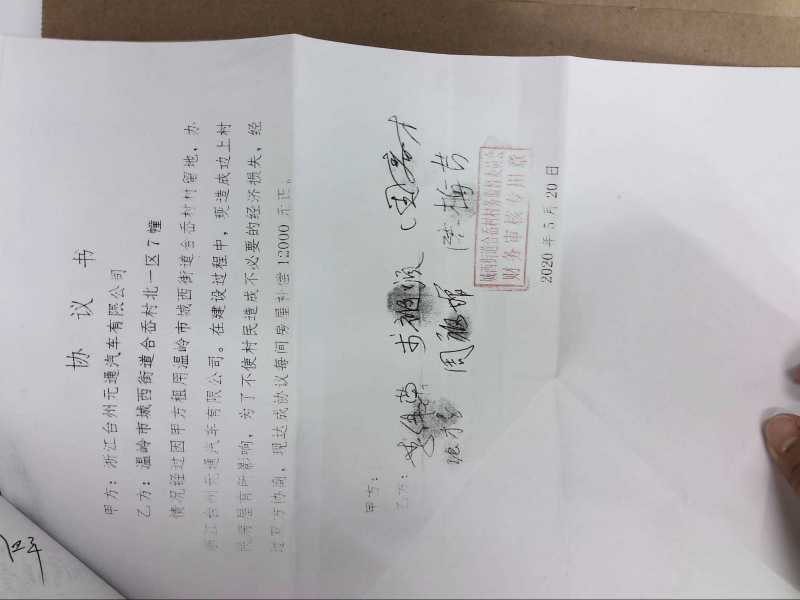 协议书
甲方：浙江台州元通汽车有限公司
乙方：温岭市城西街道合岙村北一区7幢
情况经过因甲方租用温岭市城西街道合岙村村留地，办
浙江台州元通汽车有限公司。在建设过程中，现造成功上村
民房屋有所影响，为了不使村民造成不必要的经济损失，经
过双方协商，现达成协议每间房屋补偿12000元正。
甲方：
乙方：
城西街道合岙村村务监督委员会
财务审核专用章
2020年5月20日